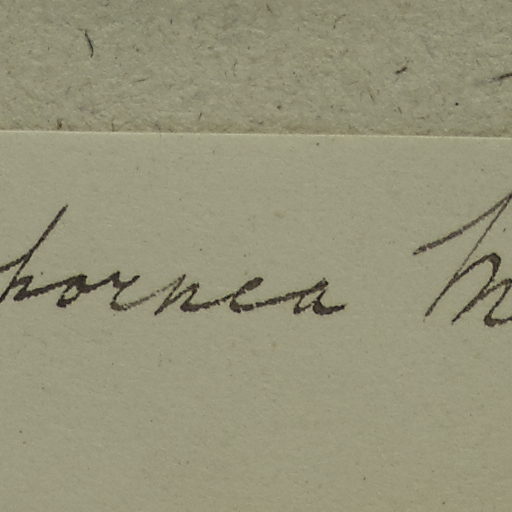 hornea M